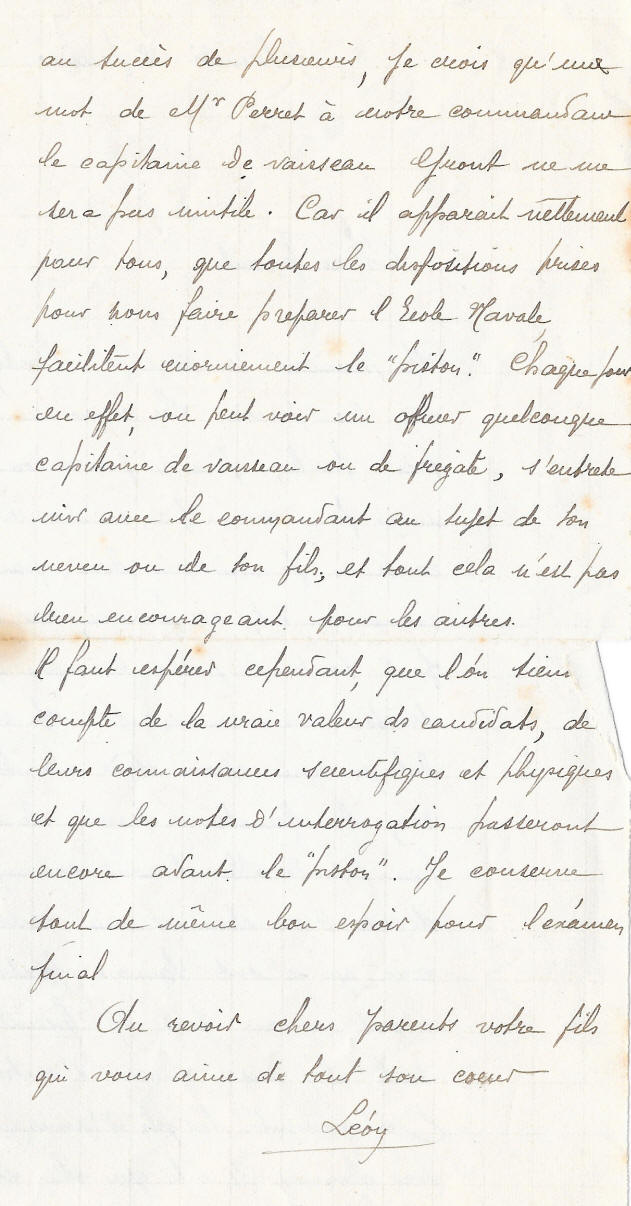 au succès de plusieurs, je crois qu'une
mot de Mr Perret à notre commandant
le capitaine de vaisseau ne me
sera pas inutile. Car il apparait nettement
pour tous, que toutes les dispositions prises
pour nous faire preparer l Ecole Navale,
facilitent enormement le "piston". Chaque jour
en effet, on peut voir un officier quelconque
capitaine de vaisseau ou de frégate, s'entrete
nir avec le commandant au sujet de son
neveu ou de son fils; et tout cela n'est pas
bien encourageant pour les autres.
Il faut espérer cependant, que l'on tien
compte de la vraie valeur ds candidats, de
leurs connaissances scientifiques et physiques
et que les notes d'interrogation passeront
encore avant le "piston". Je conserve
tout de même bon espoir pour l'exámen
final
Au revoir chers parents votre fils
qui vous aime de tout son coeur
Léon